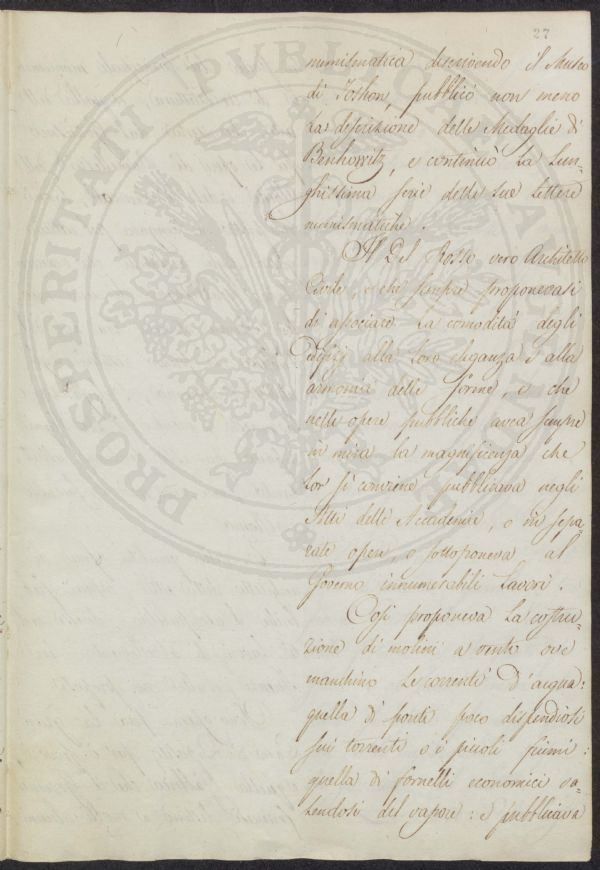 27
numismatica descrivendo il Museo
di Toshon, pubblicò non meno
la descrizione delle Medaglie di
Benkowitz, e continuò la lun=
ghissima serie delle sue lettere
numismatiche.
Il Del Rosso vero Architetto
Civile, e che sempre proponevasi
di associare la comodità degli
edifizj alla loro eleganza e alla
armonia delle forme, e che
nelle opere pubbliche avea sempre
in mira la magnificenza che
lor si conviene pubblicava negli
Atti delle Accademie, o in sepa
rate opere, o sottoponeva al
Governo innumerabili lavori.
Così proponeva la costru=
zione di molini a vento ove
manchino le correnti d'acqua:
quella di ponti poco dispendiosi
sui torrenti o i piccoli fiumi:
quella di fornelli economici va=
lendosi del vapore: e pubblicava
PROSPERITATI PUBLICAE AUGENDAE